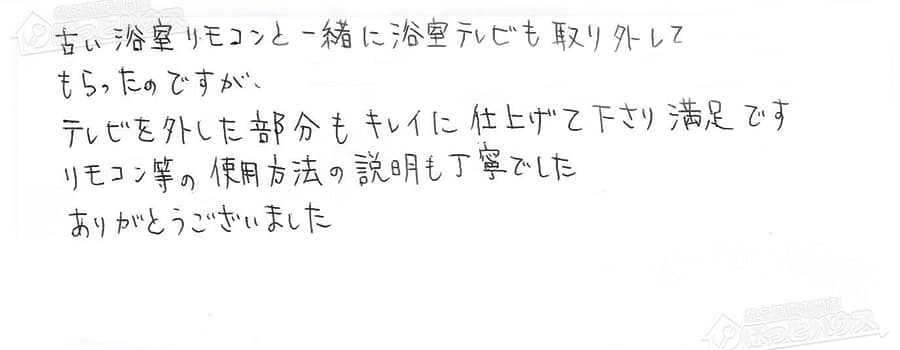 古い浴室リモコンと一緒に浴室テレビも取り外して
もらったのですが、
テレビを外した部分もキレイに仕上げて下さり満足です
リモコン等の使用方法の説明も丁寧でした
ありがとうございました